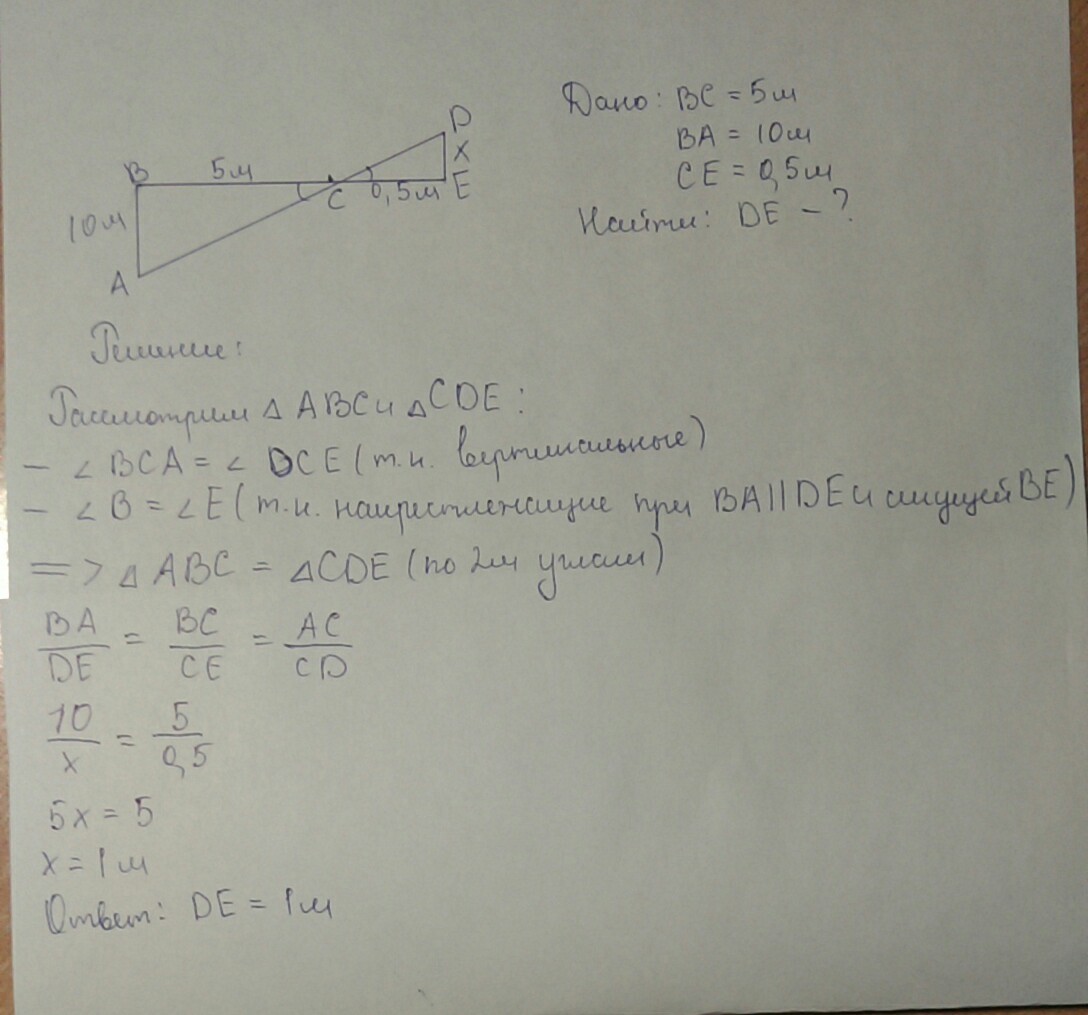 Дано: BC = 5м
BA = 10м
CE = 0,5м
Найти: DE - ?
B
5м
C
0,5м
D
x
E
10м
A
Решение:
Рассмотрим △ ABC и △ CDE :
- ∠ BCA = ∠ DCE (т.к. вертикальные)
- ∠ B = ∠ E (т.к. накрестлежащие при BA || DE и секущей BE)
=> △ ABC = △ CDE (по 2м углам)
BA/DE = BC/CE = AC/CD
10/x = 5/0,5
5x = 5
x = 1 м
Ответ: DE = 1м